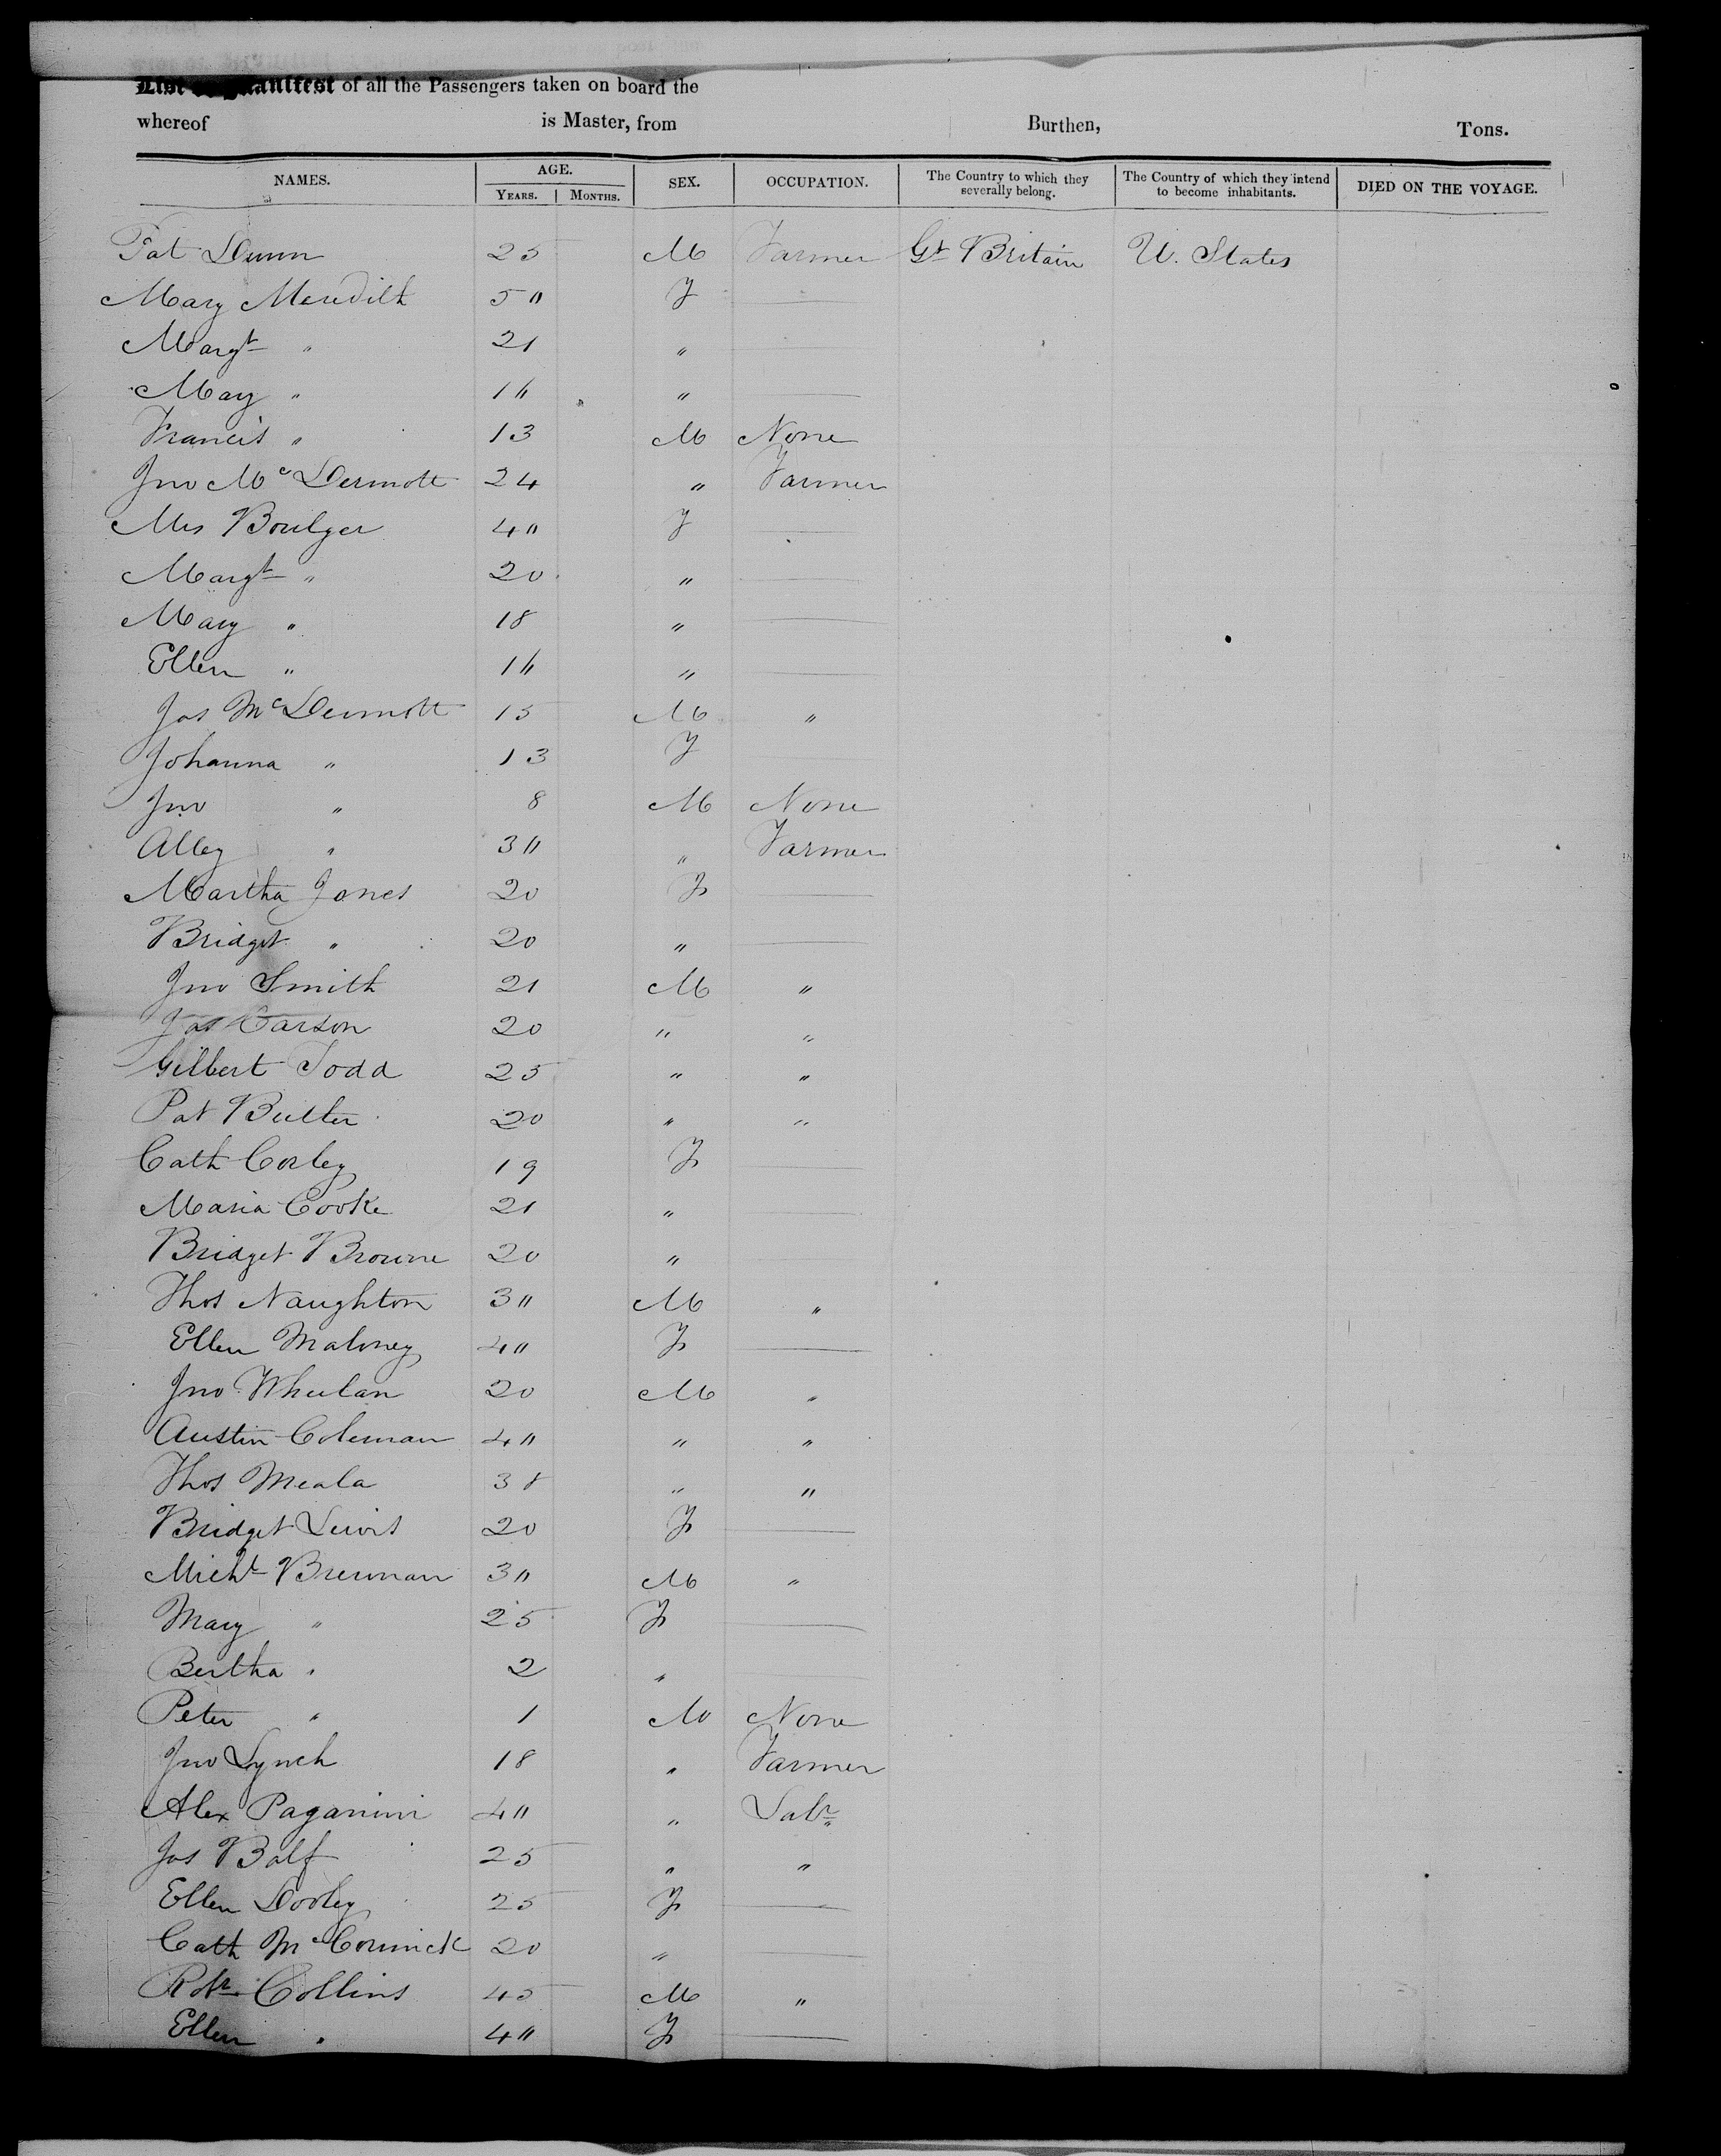 List or Manifest of all the Passengers taken on board the
whereof is Master, from Burthen, Tons.
NAMES. AGE. YEARS. MONTHS. SEX. OCCUPATION. The Country to which they severally belong. The Country of which they intend to become inhabitants. DIED ON THE VOYAGE.
Pat Dunn 25 M Farmer Gt Britain U. States
Mary Meredith 5" F
Margt " 21 "
Mary " 1" "
Francis " 13 M None
Jno McDermott 24 " Farmer
Mrs Boulger 4" F
Margt " 20 "
Mary " 18 "
Ellen " 1" "
Jas McDermott 15 M "
Johanna " 13 F
Jno " 8 M None
Alley " 3" " Farmer
Martha Jones 20 F
Bridget " 20 "
Jno Smith 21 M "
Jas Carson 20 " "
Gilbert Todd 25 " "
Pat Butler 20 " "
Cath Corley 19 F
Maria Cooke 21 "
Bridget Browne 20 "
Thos Naughton 3" M "
Ellen Maloney 4" F
Jno Wheelan 20 M "
Austin Coleman 4" " "
Thos Meala 38 " "
Bridget Lewis 20 F
Michl Brennan 3" M "
Mary " 25 F
Bertha " 2 "
Peter " 1 M None
Jno Lynch 18 " Farmer
Alex Paganini 4" " Labr
Jas Balf 25 " "
Ellen Dooley 25 F
Cath McCormick 20 "
Robt Collins 45 M "
Ellen " 4" F